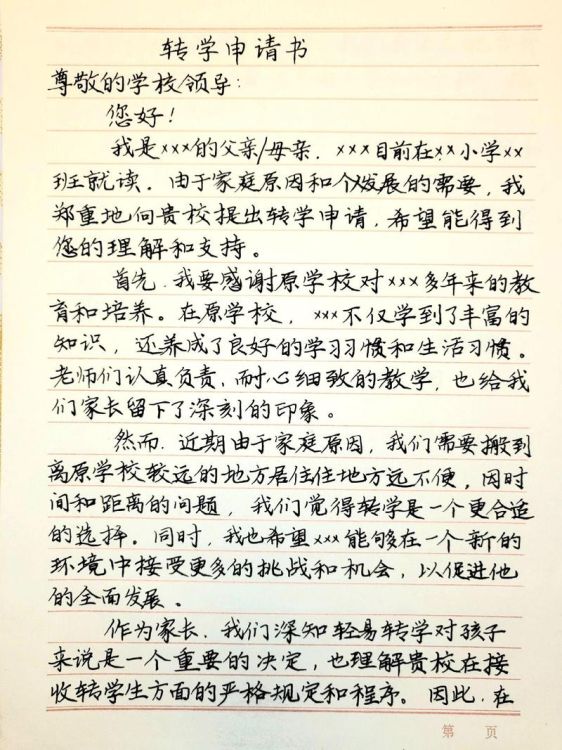 转学申请书
尊敬的学校领导:
您好!
我是×××的父亲/母亲，×××目前在××小学××
班就读。由于家庭原因和个发展的需要，我
郑重地向贵校提出转学申请，希望能得到
您的理解和支持。
首先，我要感谢原学校对×××多年来的教
育和培养。在原学校，×××不仅学到了丰富的
知识，还养成了良好的学习习惯和生活习惯。
老师们认真负责，耐心细致的教学，也给我
们家长留下了深刻的印象。
然而，近期由于家庭原因，我们需要搬到
离原学校较远的地方居住住地方远不便，因时
间和距离的问题，我们觉得转学是一个更合适
的选择。同时，我也希望×××能够在一个新的
环境中接受更多的挑战和机会，以促进他
的全面发展。
作为家长，我们深知轻易转学对孩子
来说是一个重要的决定，也理解贵校在接
收转学生方面的严格规定和程序。因此，在
第 页